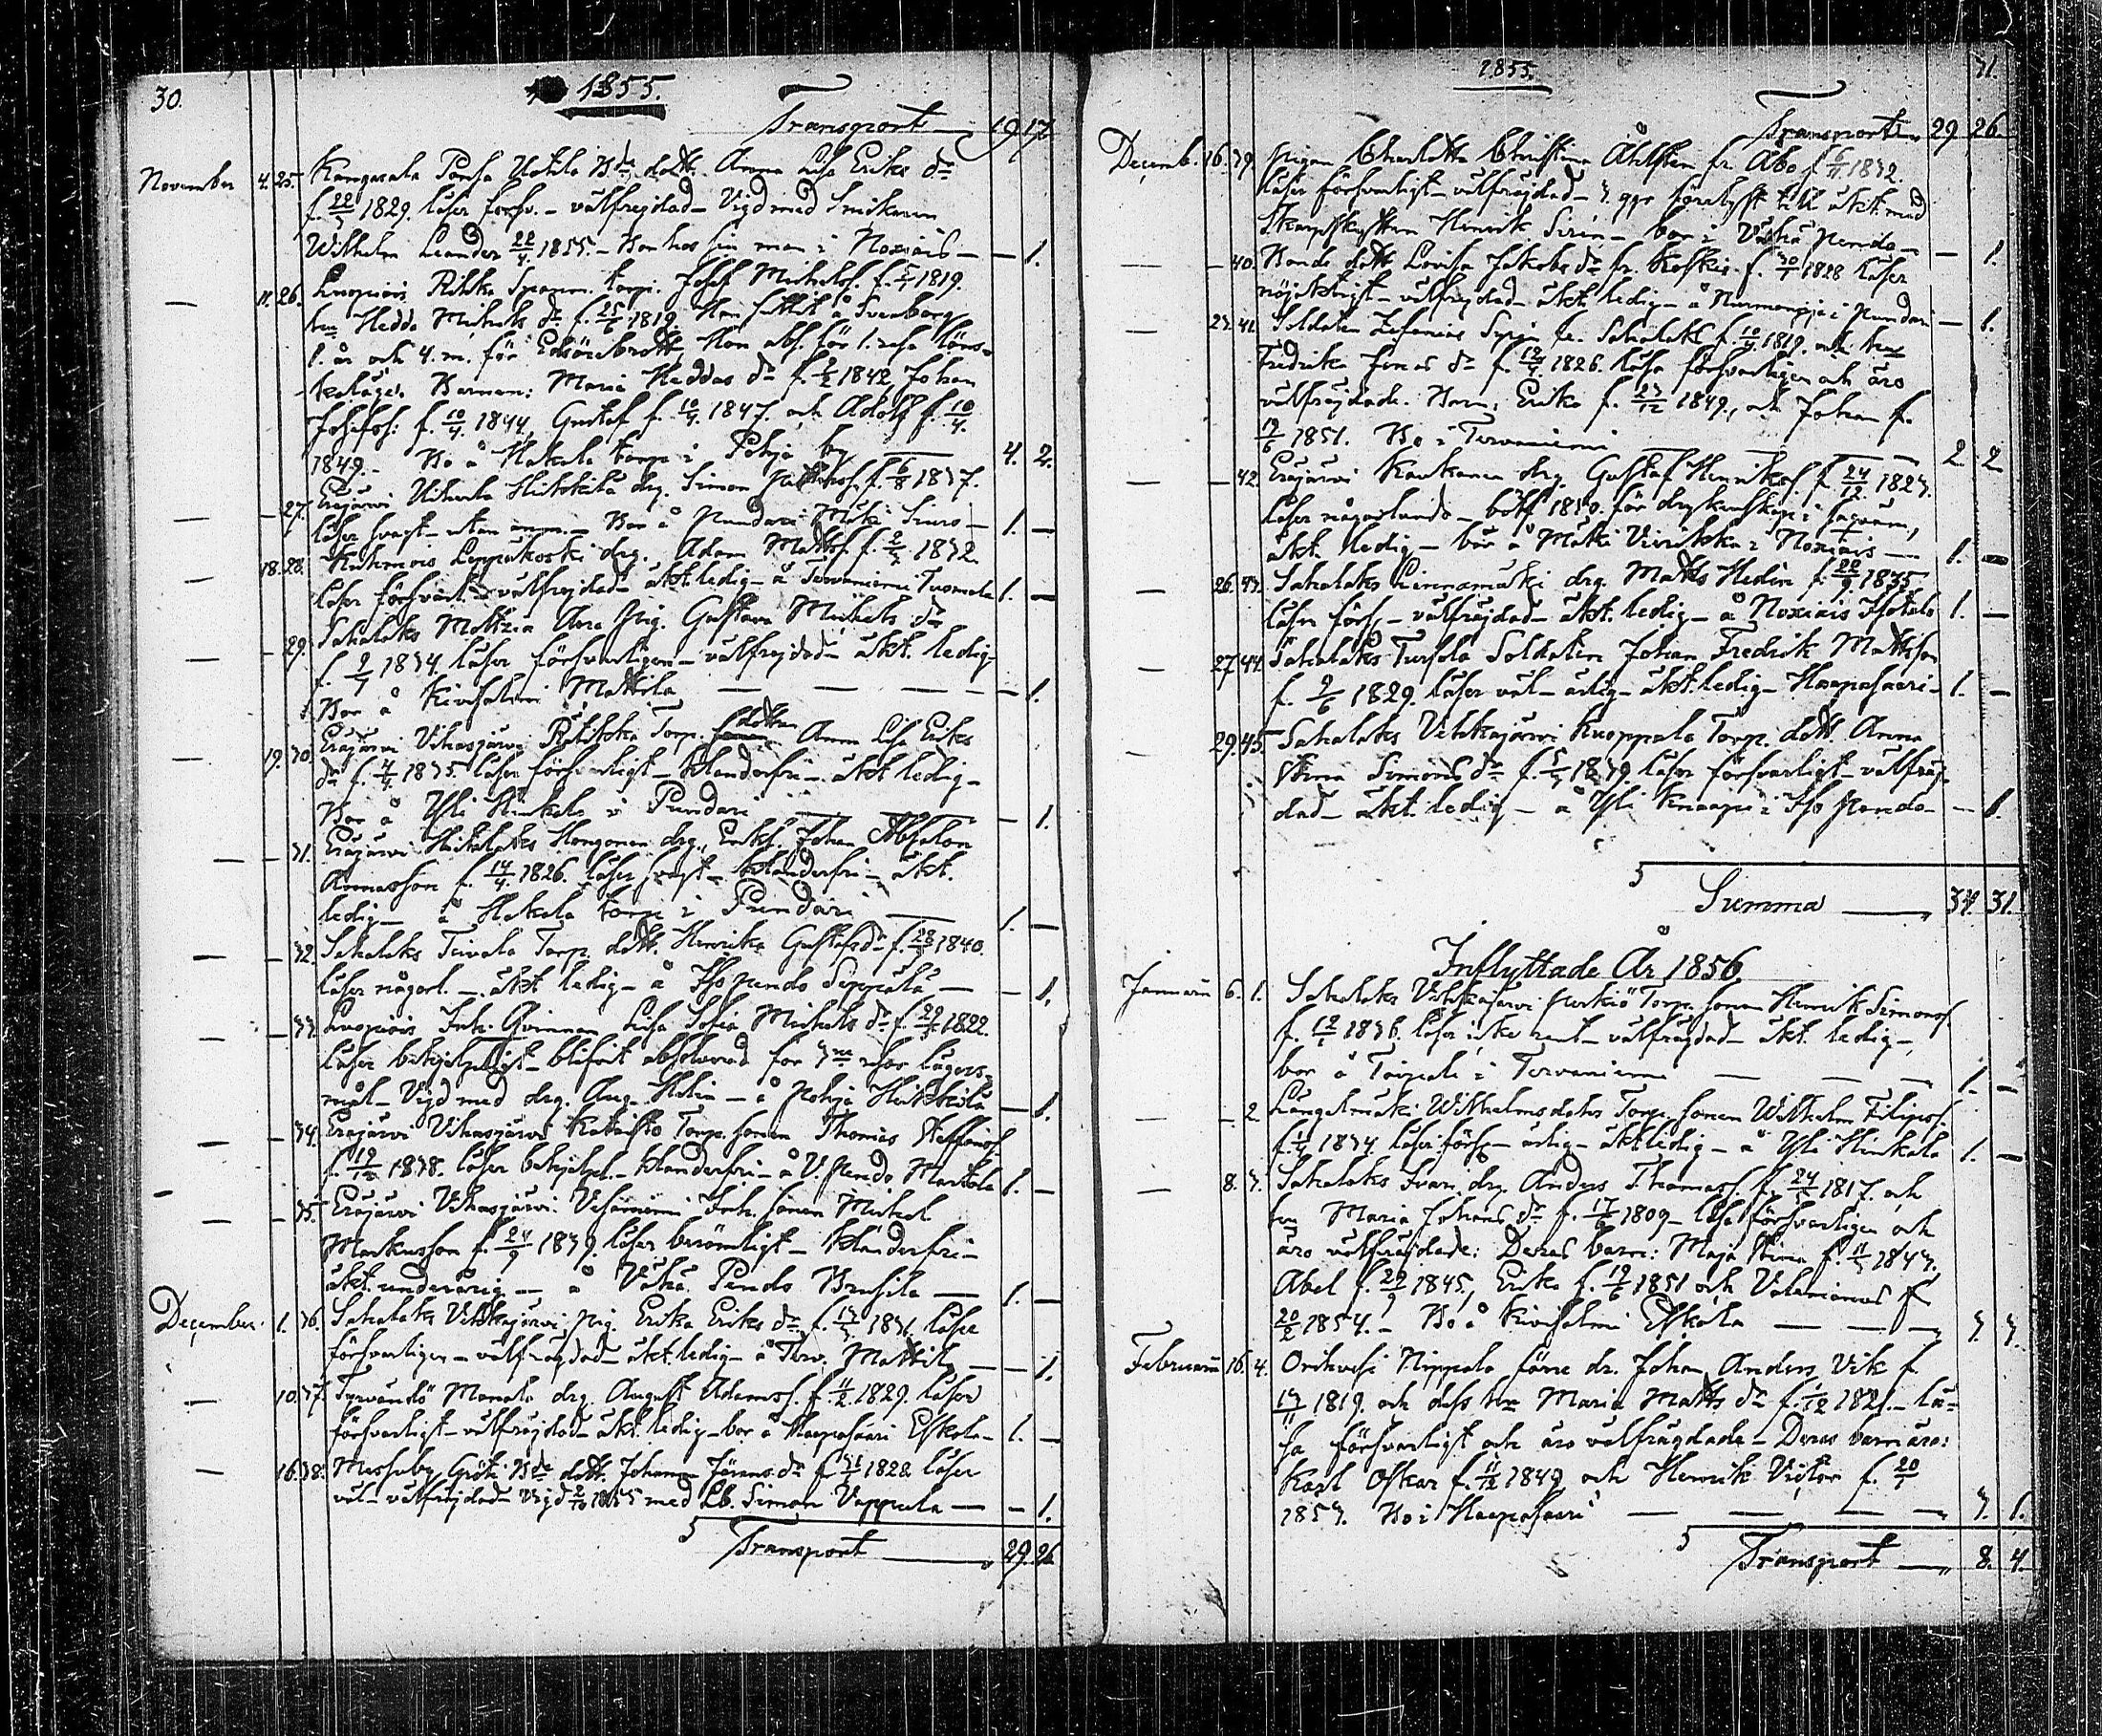 30.
1855.
Transport 19 17
November 4. 25. Kangasala Uotila Bde dott. Anna Lisa Eriks dr
f. 22/3 1829. läser försv. - välfrejdad - Vigd med
Wilhelm Leander 22/4 1855. - Bor hos sin man i Noxiais - — 1.
— 11. 26. Luopiois torp. Josef Michelss. f. 1819.
hu Hedda Michels dr f. 25/6 1819. Han suttit å Sveaborg
1. år och 4. m. för Edsöresbrott, Hon abs. för 1. resa löns-
kaläge. Barnen: Maria Heddas dr f. 2/2 1842, Johan
Josefss: f. 10/4. 1844, Gustaf f. 10/4. 1847. och Adolf f. 10/4.
1849. - Bo å Hakala torp i Pohja by — 4. 2.
— — 27. Eräjärvi Uihula Huikkila drg. Simon f. 6/8 1837.
läser svagt - utan anm. - Bor å Pundari Mäki Siuro — 1. —
— 18. 28. Kuhmois Leppäkoski drg. Adam Mattss. f. 1832.
läser försvarl. - välfrejdad - äkt. ledig - å Tervaniemi Tuomala 1. —
— — 29. Sahalaks Mattila Pig. Gustava Michels dr
f. 9/7 1834 läser försvarligen - välfrejdad - äkt. ledig -
Bor å Kivisalmi Mattila — — — — 1.
— 19. 30. Eräjärvi Vihasjärvi Torp. dottren Anna Lisa Eriks
dr f. 4/4 1835. läser försvarligt - klanderfri - äkt. ledig -
Bor å Yli Hinkala i Pundari — — — 1.
— — 31. Eräjärvi Hongonen drg. Enkl. Johan Abfalon
Annasson f. 14/4. 1826. läser svagt - klanderfri - äkt.
ledig - å Hakala torp i Pundari — 1. —
— — 32. Sahalaks Toivala Torp. dott. Henrika Gustafs dr f. 1840.
läser någorl. - äkt. ledig - å Iso Pendo Seppälä — — 1.
— — 33. Luopiois Inh. Qvinnan Lisa Sofia Michels dr f. 29/3 1822.
läser behjelpligt - blifvit absolverad för 3ne resor lägers-
mål - Vigd med drg. Aug. Helin - å Pohja Heikkilä — 1.
— — 34. Eräjärvi Vihasjärvi Katisto Torp. sonen Thomas Steffanss.
f. 19/12 1838. läser behjelpl. - klanderfri - å V. Pendo Markkola 1. —
— — 35. Eräjärvi Vihasjärvi Vesaniemi Inh. sonen Michel
Markusson f. 24/9 1839. läser berömligt - klanderfri -
äkt. underårig — å Vähä Pendo Brusila — 1. —
December. 1. 36. Sahalaks Vehkajärvi pig. Erika Eriks dr f. 1831. läser
försvarligen - välfrägdad - äkt. ledig - å Terv. Mattila — — 1.
— 10. 37. Tyrvändö Monala drg. August Adamss. f. 11/2 1829. läser
försvarligt - välfräjdad - äkt. ledig - bor å Haapasaari Eskola - 1. —
— 16. 38. Messuby Bde dott. Johanna Görans dr f. 1828 läser
väl - välfräjdad - Vigd 2/10 1855 med Lb. Simon Vappula — — 1.
Transport — 29. 26
1855. 31.
Transport 29 26.
Decemb. 16. 39. Pigan Charlotta Christina Åhlsten fr. Åbo f. 1832.
läser försvarligt - välfräjdad - 3. ggr förelyst till äkt. med
Skarpskytten Henrik Siren - bor i Vähä Pendo - — 1.
— — 40. Bonde dott. Lovisa Jakobs dr fr. Koskis. f. 30/7 1828 läser
nöjaktigt - välfrejdad - äkt. ledig - å i Pundari - — 1.
— 23. 41. Soldaten Zefanias fr. Sahalaks f. 10/4 1819. och hu
Fredrika Jonas dr f. 12/4 1826. läsa försvarligen och äro
välfräjdade. Barn: Erika f. 23/12 1849, och Johan f.
19/6 1851. Bo i Tervaniemi — — 2 2
— — 42. Eräjärvi Rautanen drg. Gustaf Henrikss. f. 24/12. 1823.
läser någorlunda - bött 1850. för dryckenskap
äkt. ledig - bor å Mäki Virikka i Noxiais — 1. —
— 26. 43. Sahalaks Linnamäki drg. Matts Hedin f. 22/9. 1835
läser förs. - välfräjdad - äkt. ledig - å Noxiais Isotalo 1. —
— 27. 44. Sahalaks Tursola Soldaten Johan Fredrik Mattsson
f. 9/6 1829. läser väl - ärlig - äkt. ledig - Haapasaari - 1. —
— 29. 45. Sahalaks Vehkajärvi Knoppala Torp. dott. Anna
Stina Simons dr f. 1839. läser försvarligt - välfräj-
dad - äkt. ledig - å Yli Knaapi i Iso Pendo — — 1.
Summa — 34. 31.
Inflyttade År 1856
Januari 6. 1. Sahalaks Vehkajärvi Purkiö Torp. sonen Henrik Simonss.
f. 12/1 1836. läser icke rent - välfrägdad - äkt. ledig -
bor å Toipala i Tervaniemi — — — 1. —
— — 2 Längelmäki Wilhelmsdahls Torp. sonen Wilhelm Filipss.
f. 1/4 1834. läser förs. - ärlig - äkt. ledig - å Yli Hinkala 1. —
— 8. 3. Sahalaks drg. Anders Thomass. f. 24/5 1817. och
hu Maria Johans dr f. 17/6 1809 - läsa försvarligen och
äro välfräjdade: Deras barn: Maja Stina f. 11/5 1843.
Abel f. 29/9 1845, Erika f. 19/6 1851 och Valerianus f.
20/2 1854. - Bo å Kivisalmi Eskola — — — 3 3.
Februari 16. 4. Orihvesi Nippala förre dr. Johan Anders Vik f.
13/11 1819. och dess hu Maria Matts dr f. 1/12 1821. - lä-
sa försvarligt och äro välfrägdade - Deras barn äro:
Karl Oskar f. 11/12 1849 och Henrik Victor f. 20/1
1853. Bo i Haapasaari — — — 3. 1.
Transport — 8. 4.